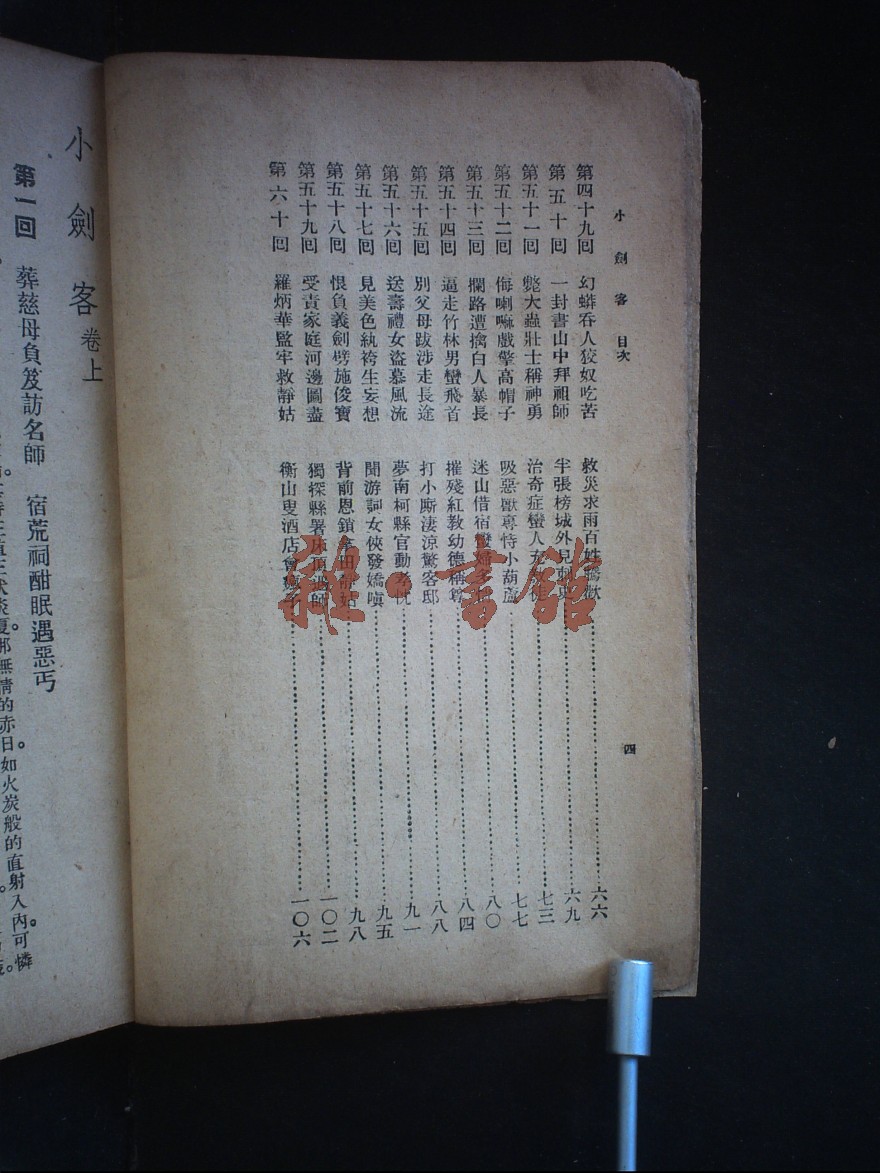 小劍客 目次
第四十九回 幻蟒吞人狡奴吃苦 救災求雨百姓騰歡 六六
第五十回 一封書山中拜祖師 半張榜城外見刺史 六九
第五十一回 斃大蟲壯士稱神勇 治奇症蠻人充 七三
第五十二回 侮喇嘛戲擎高帽子 吸惡獸專恃小葫蘆 七七
第五十三回 攔路遭擒白人暴長 迷山借宿蠻婦多 八〇
第五十四回 逼走竹林男蠻飛首 摧殘紅教幼德稱尊 八四
第五十五回 別父母跋涉走長途 打小廝淒涼驚客邸 八八
第五十六回 送壽禮女盜慕風流 夢南柯縣官動 九一
第五十七回 見美色紈袴生妄想 聞游詞女俠發嬌嗔 九五
第五十八回 恨負義劍劈施俊寶 背前恩鎖 靜姑 九八
第五十九回 受責家庭河邊圖盡 獨探縣署床頂遇師 一〇二
第六十回 羅炳華監牢救靜姑 衡山叟酒店會 一〇六
四
小劍客 卷上
第一回 葬慈母負笈訪名師 宿荒祠酣眠遇惡丐
無情的赤日。如火炭般的直射入內。可憐
雜書館